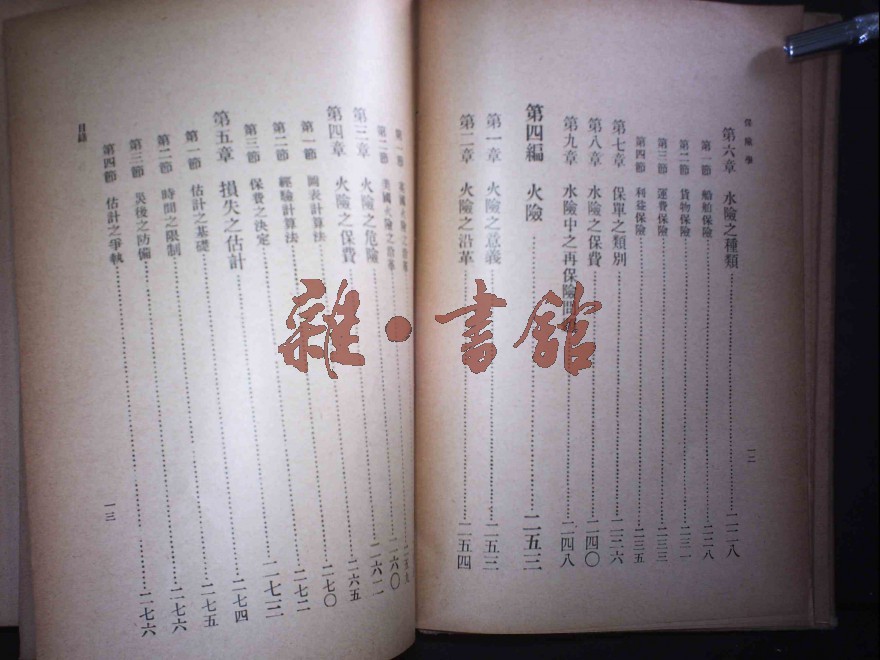 保險學
第六章 水險之種類 二二八
第一節 船舶保險 二二八
第二節 貨物保險 二三一
第三節 運費保險 二三三
第四節 利益保險 二三五
第七章 保單之類別 二三六
第八章 水險之保費 二四〇
第九章 水險中之再保險 二四八
第四編 火險 二五三
第一章 火險之意義 二五三
第二章 火險之沿革 二五四
一二
第一節 英國火險之沿革
第二節 美國火險之沿革 二六〇
第三章 火險之危險 二六二
第四章 火險之保費 二六五
第一節 圖表計算法 二七〇
第二節 經驗計算法 二七二
第三節 保費之決定 二七三
第五章 損失之估計 二七四
第一節 估計之基礎 二七五
第二節 時間之限制 二七六
第三節 災後之防備 二七六
第四節 估計之爭執
目錄
一三
雜·書館